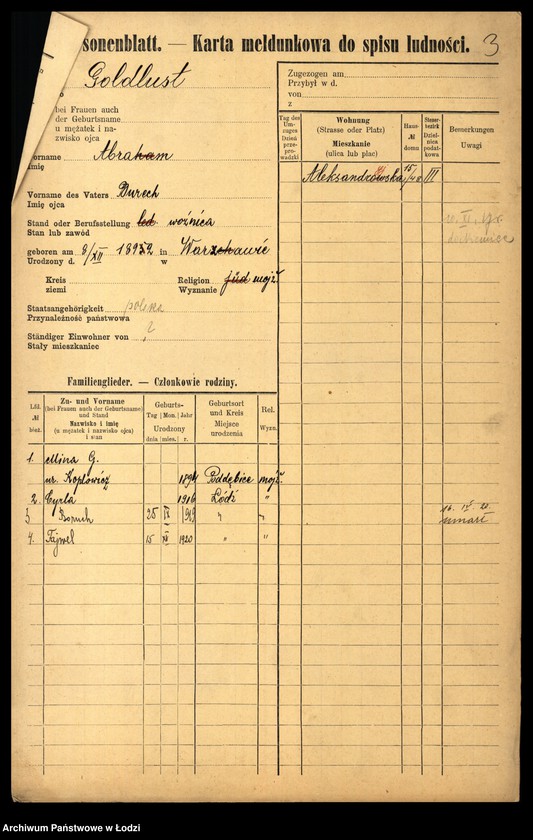 sonenblatt. — Karta meldunkowa do spisu ludności. 3
Goldlust
bei Frauen auch
der Geburtsname
u mężatek i na-
zwisko ojca
Vorname Abraham
Imię
Vorname des Vaters
Imię ojca
Stand oder Berufsstellung led. woźnica
Stan lub zawód
geboren am 8/XII in
Urodzony d. w
Kreis
ziemi
Religion jüd mojż.
Wyznanie
Staatsangehörigkeit polska
Przynależność państwowa
Ständiger Einwohner von
Stały mieszkaniec
Zugezogen am
Przybył w d.
von
z
Tag des Um-zuges Dzień prze-prowadzki
Wohnung (Strasse oder Platz) Mieszkanie (ulica lub plac)
Haus № domu
Steuer-bezirk Dziel-nica podat-kowa
Bemerkungen Uwagi
Aleksandrowska III
Familienglieder. — Członkowie rodziny.
Lfd. № bież.
Zu- und Vorname (bei Frauen auch der Geburtsname) und Stand Nazwisko i imię (u mężatek i nazwisko ojca) i stan
Geburts- Tag Mon. Jahr Urodzony dnia mies. r.
Geburtsort und Kreis Miejsce urodzenia
Rel. Wyzn.
1. Mina G.
ur. Koplowicz mojż.
2. Cyrla 1916 Łódź "
3 Boruch 25 " "
16. IV 21.
umarł
4. Fajwel 15 1920 " "
Archiwum Państwowe w Łodzi